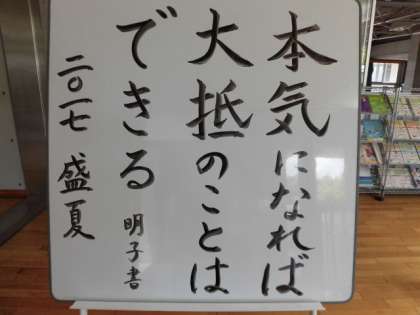 本気になれば
大抵のことは
できる 明子書
二〇一七 盛夏